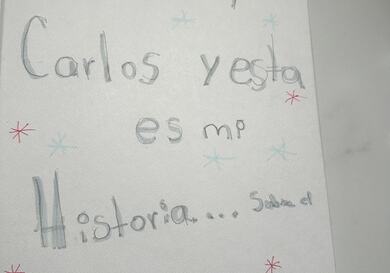 Carlos y esta
es mp
Historia.... Sobre el